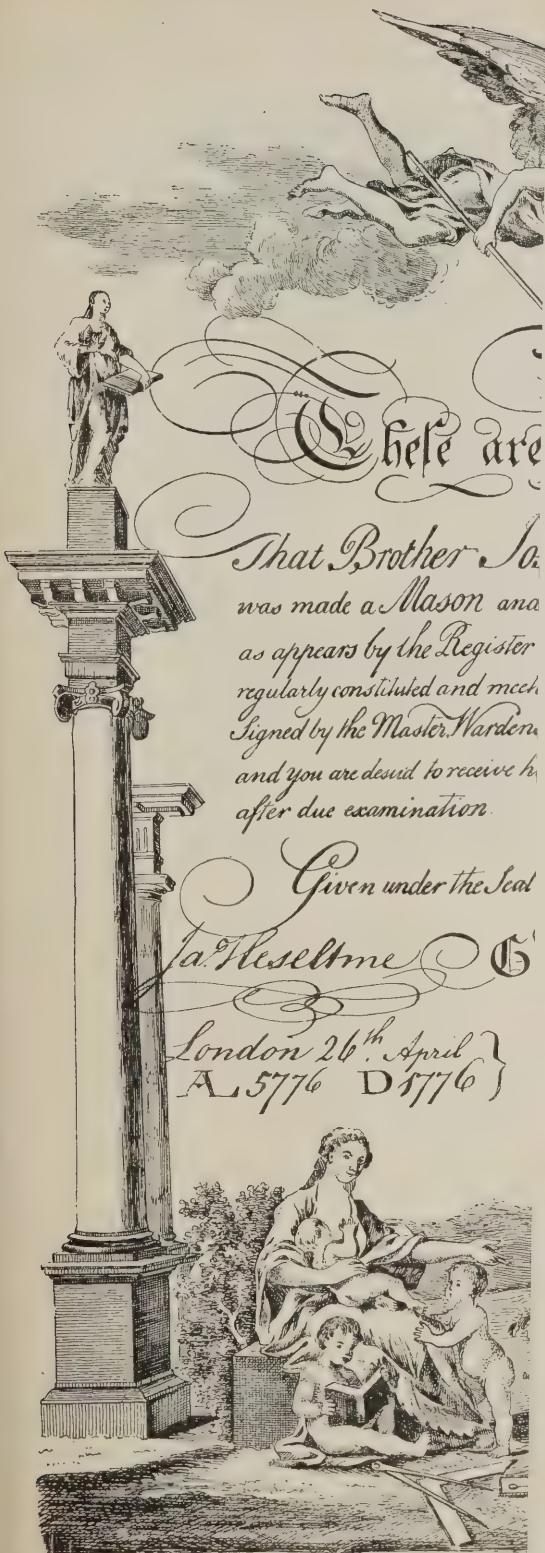 These are
That Brother Jos
was made a Mason and
as appears by the Register
regularly constituted and meet
Signed by the Master, Warden
and you are desird to receive h
after due examination.
Given under the Seal
Ja.s Heseltine G
London 26th. April
A L 5776 D 1776